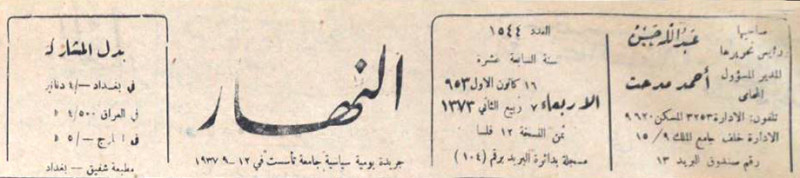 صاحبها
ورئيس تحريرها
عبدالله حسن
المدير المسؤول
المحامي
أحمد مدحت
تلفون: الادارة ٣٢٥٣ المسكن ٩٦٢٠
الادارة خلف جامع الملك ٩ / ١٥
رقم صندوق البريد ١٣
العدد ١٥٤٤
سنة السابعة عشرة
الاربعاء
١٦ كانون الاول ٩٥٣
٧ ربيع الثاني ١٣٧٣
ثمن النسخة ١٢ فلسا
مسجلة بدائرة البريد برقم (١٠٤)
النهار
جريدة يومية سياسية جامعة تأسست في ١٢ - ٩ - ١٩٣٧
بدل المشاركة
في بغداد -/٤ دنانير
في العراق ٤/٥٠٠ د
في الخارج -/٥ د
مطبعة شفيق - بغداد